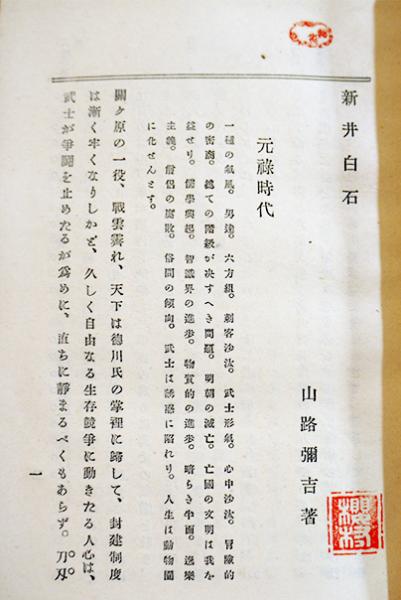 新井白石
山路彌吉著
元祿時代
一種の氣風。男達。六方組。刺客沙汰。武士形氣。心中沙汰。冒險的
の密商。總ての階級が決すべき問題。明朝の滅亡。亡國の文明は我を
益せり。儒學興起。智識界の進歩。物質的の進歩。暗らき半面。逸樂
主義。僧侶の腐敗。俗間の傾向。武士は誘惑に陷れり。人生は動物園
に化せんとす。
關ヶ原の一役、戰雲霽れ、天下は德川氏の掌裡に歸して、封建制度
は漸く牢くなりしかど、久しく自由なる生存競爭に動きたる人心は、
武士が爭鬪を止めたるが爲めに、直ちに靜まるべくもあらず。刀刄
一
櫻村